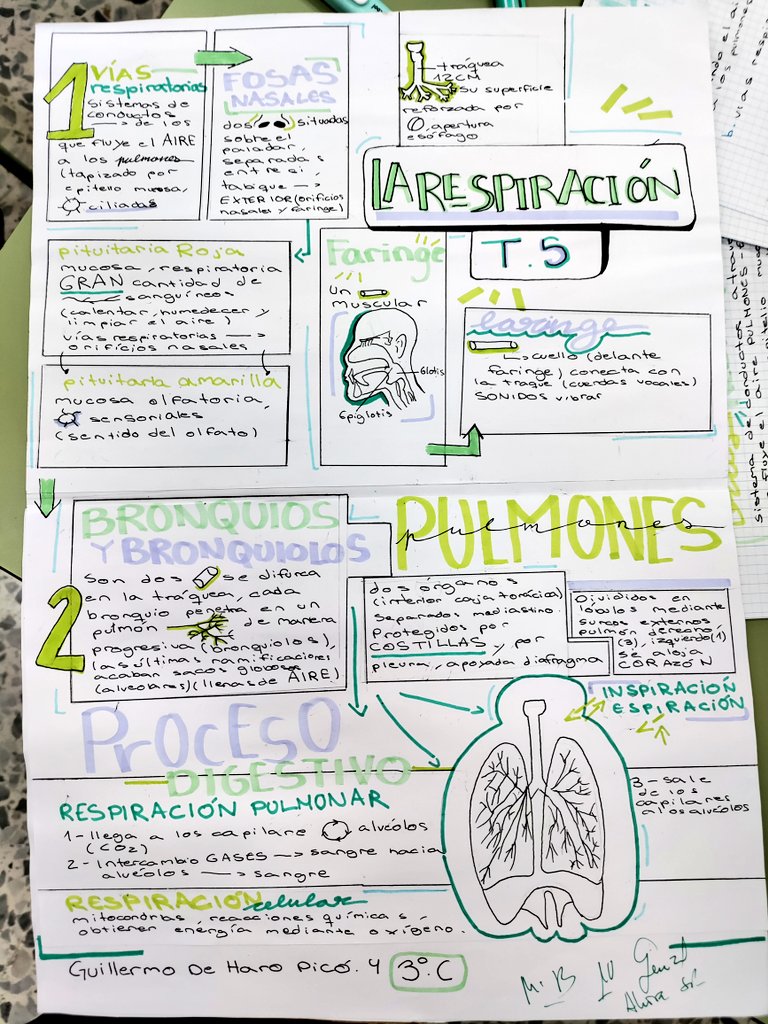 1 VÍAS
respiratorias
Sistemas de
conductos
→ de los
que fluye el AIRE
a los pulmones
(tapizado por
epitelio mucosa,
ciliadas
FOSAS
NASALES
dos situadas
sobre el
paladar,
separadas
entre si,
tabique →
EXTERIOR (orificios
nasales y faringe)
tráquea
12CM
su superficie
reforzada por
O, apertura
esófago
LA RESPIRACIÓN
T. 5
pituitaria Roja
mucosa, respiratoria
GRAN cantidad de
sanguíneos
(calentar, humedecer y
limpiar el aire)
vías respiratorias →
orificios nasales
pituitaria amarilla
mucosa olfatoria,
sensoriales
(sentido del olfato)
Faringe
un
muscular
Glotis
Epiglotis
laringe
cuello (delante
faringe) conecta con
la traque (cuerdas vocales)
SONIDOS vibrar
2 BRONQUIOS
Y BRONQUIOLOS
Son dos se difurca
en la tráquea, cada
bronquio penetra en un
pulmón de manera
progresiva (bronquiolos),
las últimas ramificaciones
acaban sacos globosos
(alveolares) (llenas de AIRE)
PULMONES
pulmones
dos órganos
(interior caja torácica)
separados mediastino.
Protegidos por
COSTILLAS y por
pleura, apoyada diafragma
Dividides en
lóbulos mediante
surcos externos
pulmón derecho
(3), izquierdo (1)
se aloja
CORAZÓN
INSPIRACIÓN
ESPIRACIÓN
PROCESO
DIGESTIVO
RESPIRACIÓN PULMONAR
1- llega a los capilare alvéolos
(CO2)
2- Intercambio GASES → sangre hacia
alvéolos → sangre
3- sale
de los
capilares
a los alvéolos
RESPIRACIÓN celular
mitocondrias, reacciones químicas,
obtienen energía mediante oxígeno.
Guillermo De Haro Picó. 4 3º.C
M. B 10